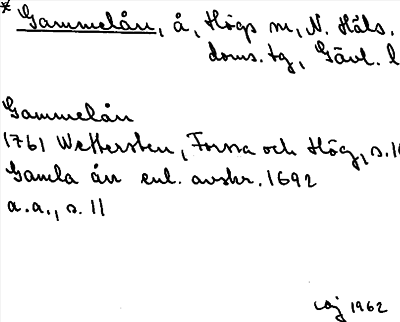 * Gammelån, å, Högs sn, N. Häls.
doms.tg, Gävl. l
Gammelån
1761 Wettersten, Forssa och Hög, s.1
Gamla ån enl. avskr. 1692
a.a., s. 11
1962